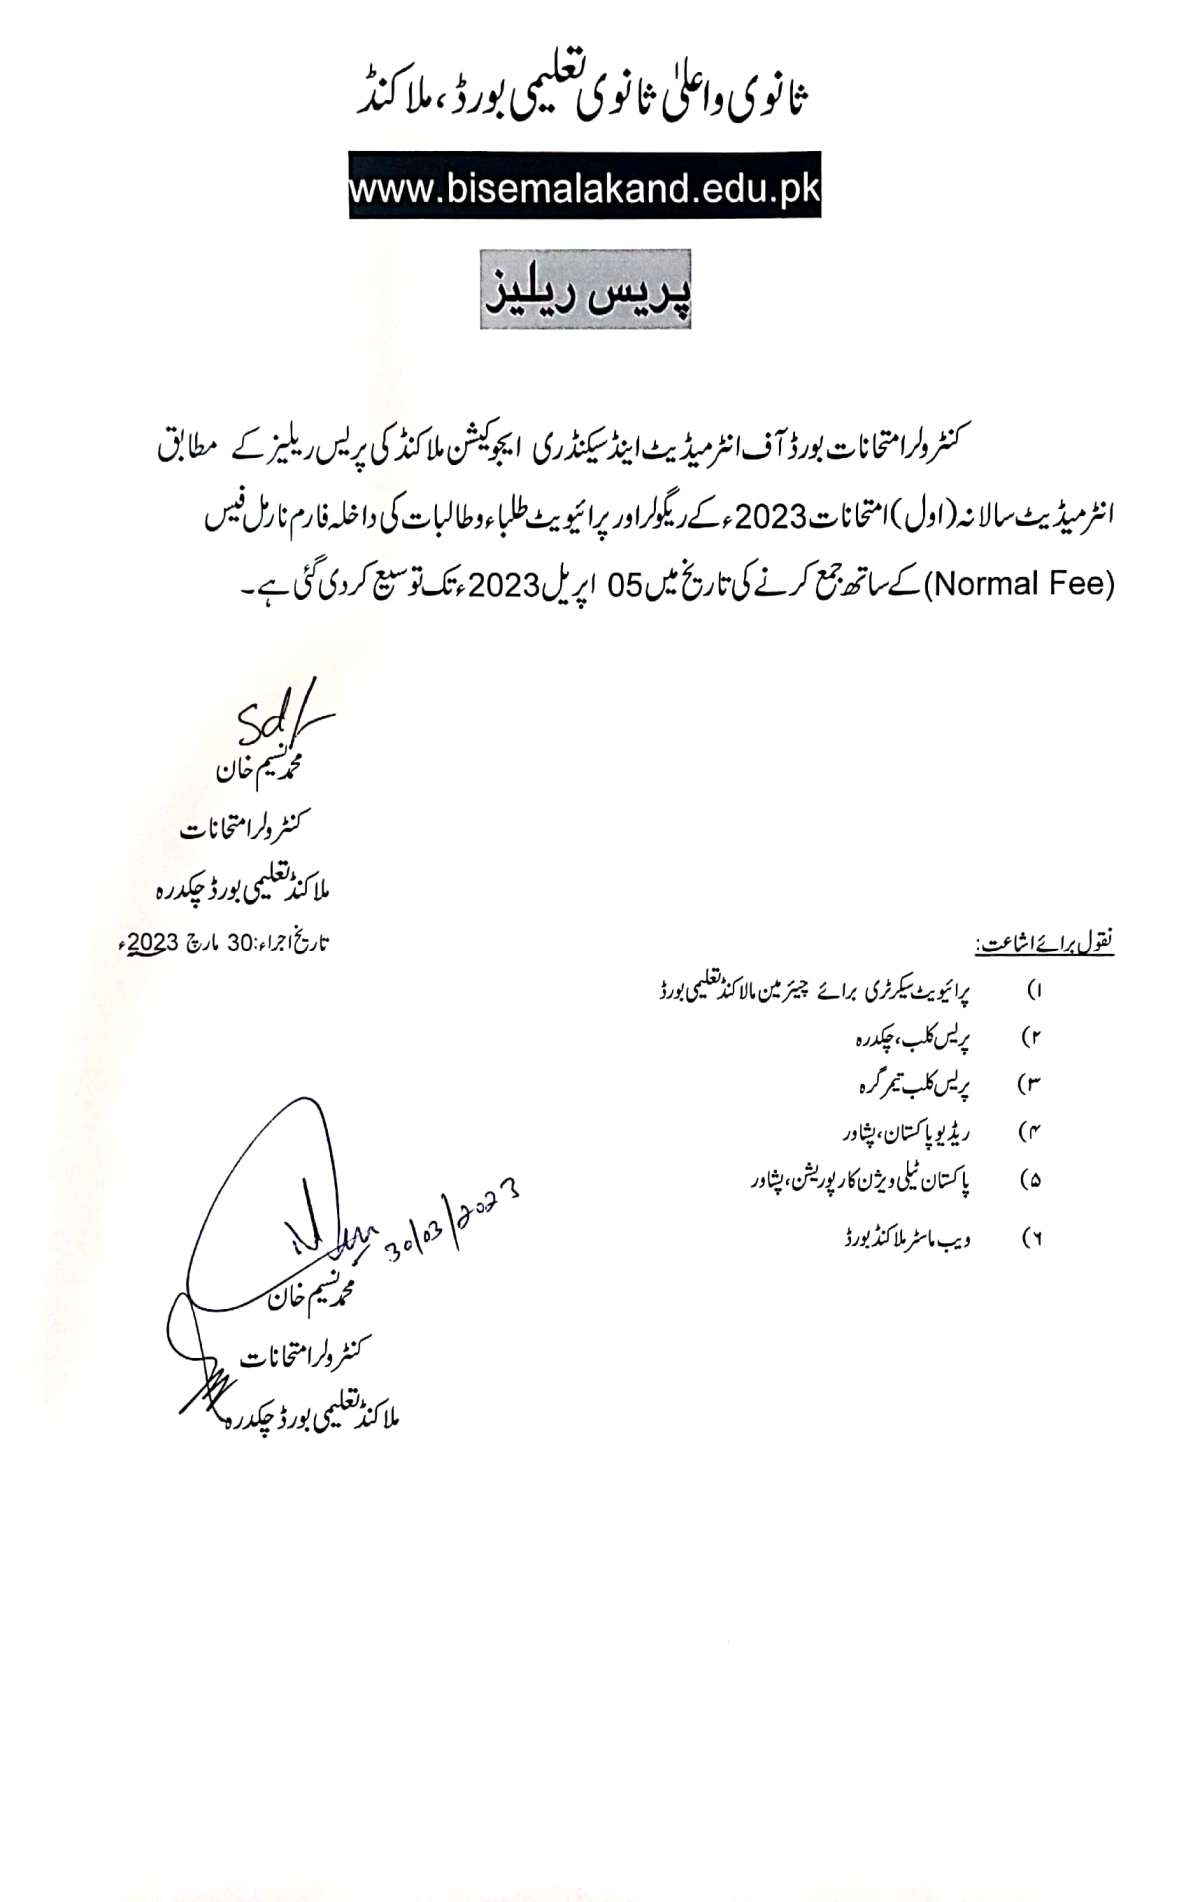 ثانوی و اعلیٰ ثانوی تعلیمی بورڈ، ملاکنڈ
www.bisemalakand.edu.pk
پریس ریلیز
کنٹرولر امتحانات بورڈ آف انٹرمیڈیٹ اینڈ سیکنڈری ایجوکیشن ملاکنڈ کی پریس ریلیز کے مطابق
انٹرمیڈیٹ سالانہ (اول) امتحانات 2023ء کے ریگولر اور پرائیویٹ طلباء و طالبات کی داخلہ فارم نارمل فیس
(Normal Fee) کے ساتھ جمع کرنے کی تاریخ میں 05 اپریل 2023ء تک توسیع کردی گئی ہے۔
Sd/-
محمد نسیم خان
کنٹرولر امتحانات
ملاکنڈ تعلیمی بورڈ چکدرہ
تاریخ اجراء: 30 مارچ 2023ء
نقول برائے اشاعت:
۱) پرائیویٹ سیکرٹری برائے چیئرمین مالاکنڈ تعلیمی بورڈ
۲) پریس کلب، چکدرہ
۳) پریس کلب تیمرگرہ
۴) ریڈیو پاکستان، پشاور
۵) پاکستان ٹیلی ویژن کارپوریشن، پشاور
۶) ویب ماسٹر ملاکنڈ بورڈ
30/03/2023
محمد نسیم خان
کنٹرولر امتحانات
ملاکنڈ تعلیمی بورڈ چکدرہ